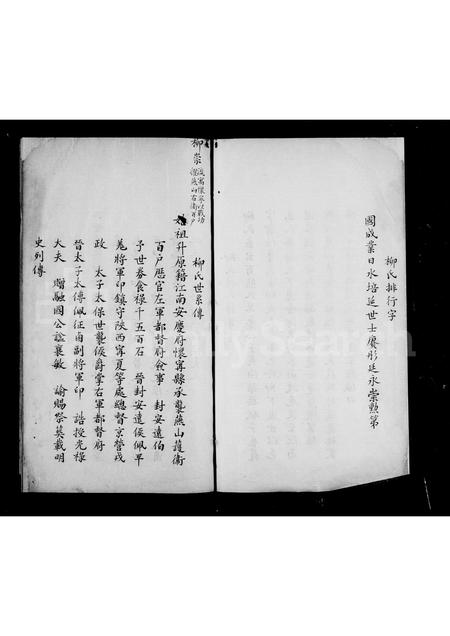 柳氏排行字
國咸業日永培延世士廖彤廷永崇勲第
柳崇
柳氏世系傳
始祖升原籍江南安慶府懷寧縣承襲燕山護衛
百户歷官左軍都督府僉事 封安遠伯
予世劵食祿千五百石 晉封安遠侯佩平
羌將軍印鎮守陜西寧夏等處總督京營戎
政 太子太保世襲侯爵掌右軍都督府
晉太子太傅佩征甬副將軍印 誥授光祿
大夫 贈融國公諡襄敏 諭賜祭葬載明
史列傳